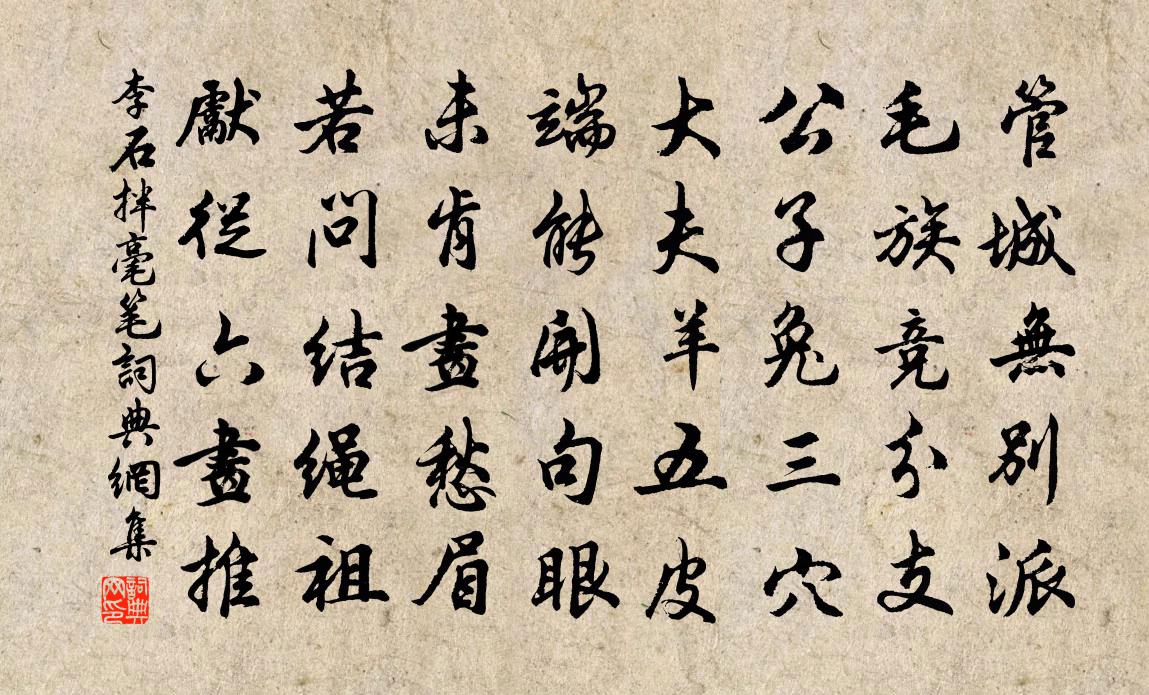 管城無別派
毛族竞分支
公子兔三穴
大夫羊五皮
端能開句眼
未肯畫愁眉
若问結绳祖
獻從六畫推
李石拌毫笔詞典網集
詞典